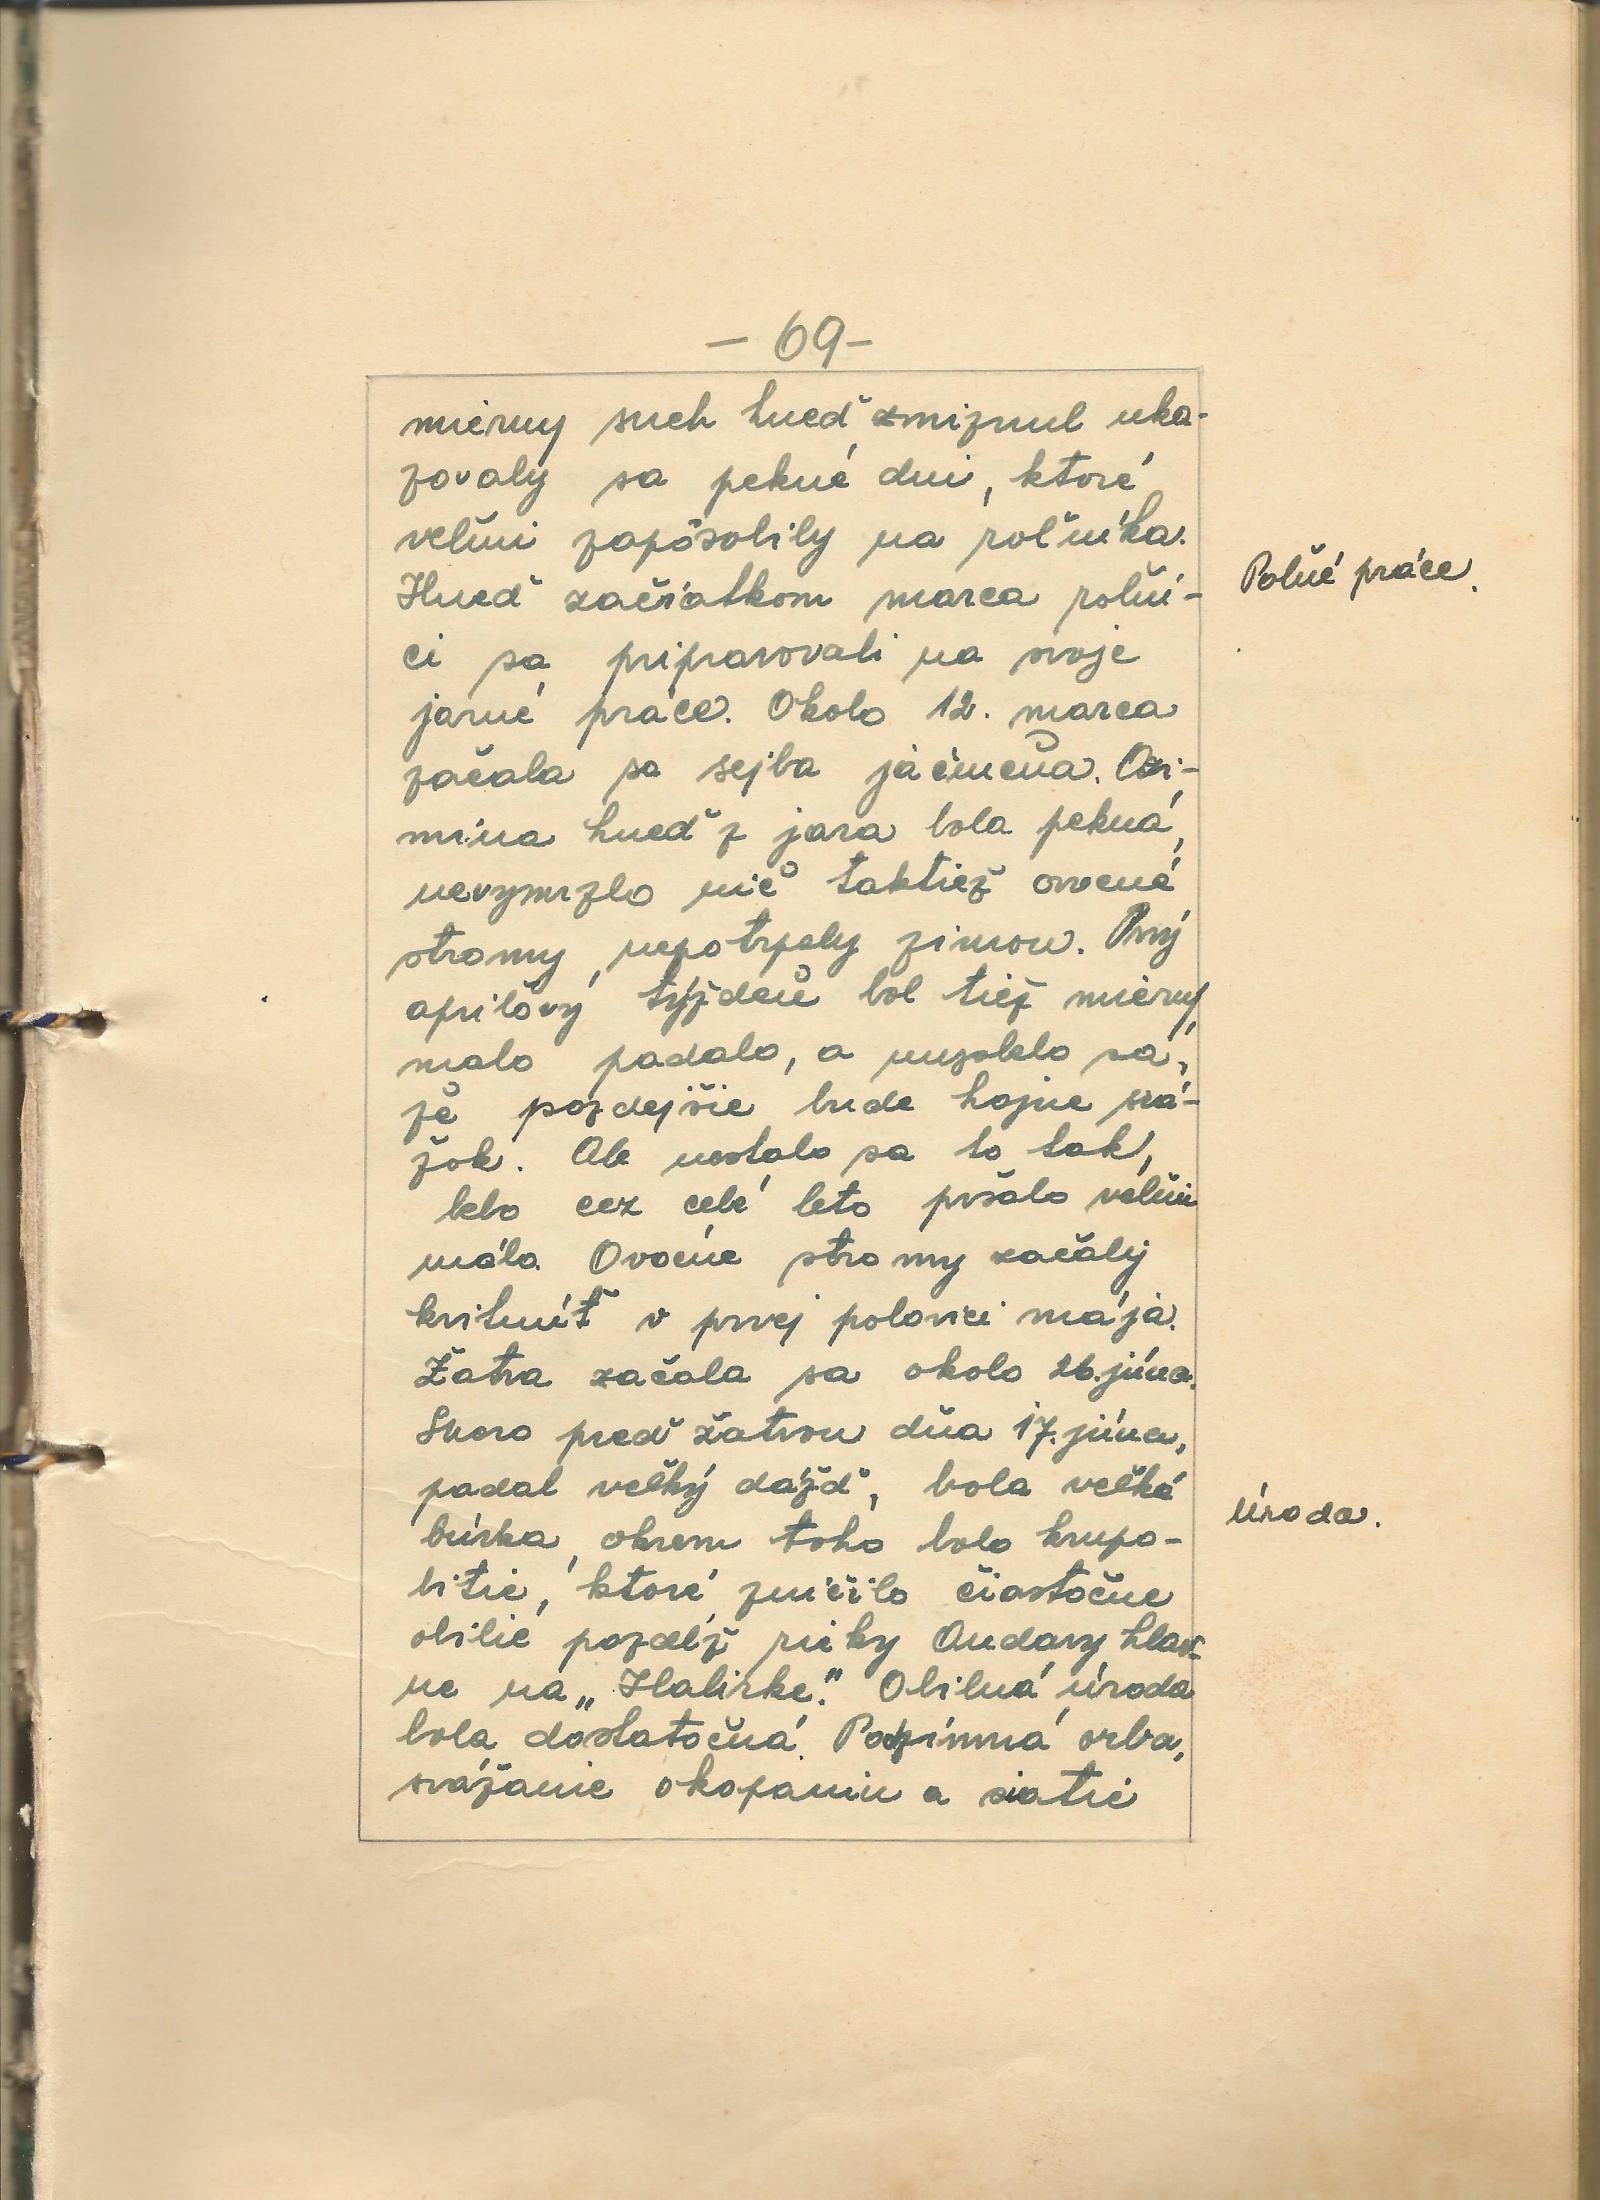 - 69 -
mierny sneh hneď zmiznul uka-
zovaly sa pekné dni, ktoré
veľmi zapôsobily na roľníka.
Hneď začiatkom marca roľní-
ci sa pripravovali na svoje
jarné práce. Okolo 12. marca
začala sa sejba jačmeňa. Ozi-
mina hneď z jara bola pekná,
nevymrzlo nič taktiež ovocné
stromy nepotrpely zimou. Prvý
aprilový týždeň bol tiež mierny
malo padalo, a myslelo sa,
že pozdejšie bude hojne srá-
žok. Ale nestalo sa to tak,
lebo cez celé leto pršalo veľmi
málo. Ovocné stromy začaly
kvitnúť v prvej polovici mája.
Žatva začala sa okolo 26. júna.
Skoro pred žatvou dňa 17. júna,
padal veľký dážď, bola veľká
búrka, okrem toho bolo krupo-
bitie, ktoré zničilo čiastočne
obilie pozdĺž rieky Ondavy hlav-
ne na „Halirke." Obilná úroda
bola dostatočná. Podzimná orba,
svážanie okopanin a siatie
Poľné práce.
Úroda.